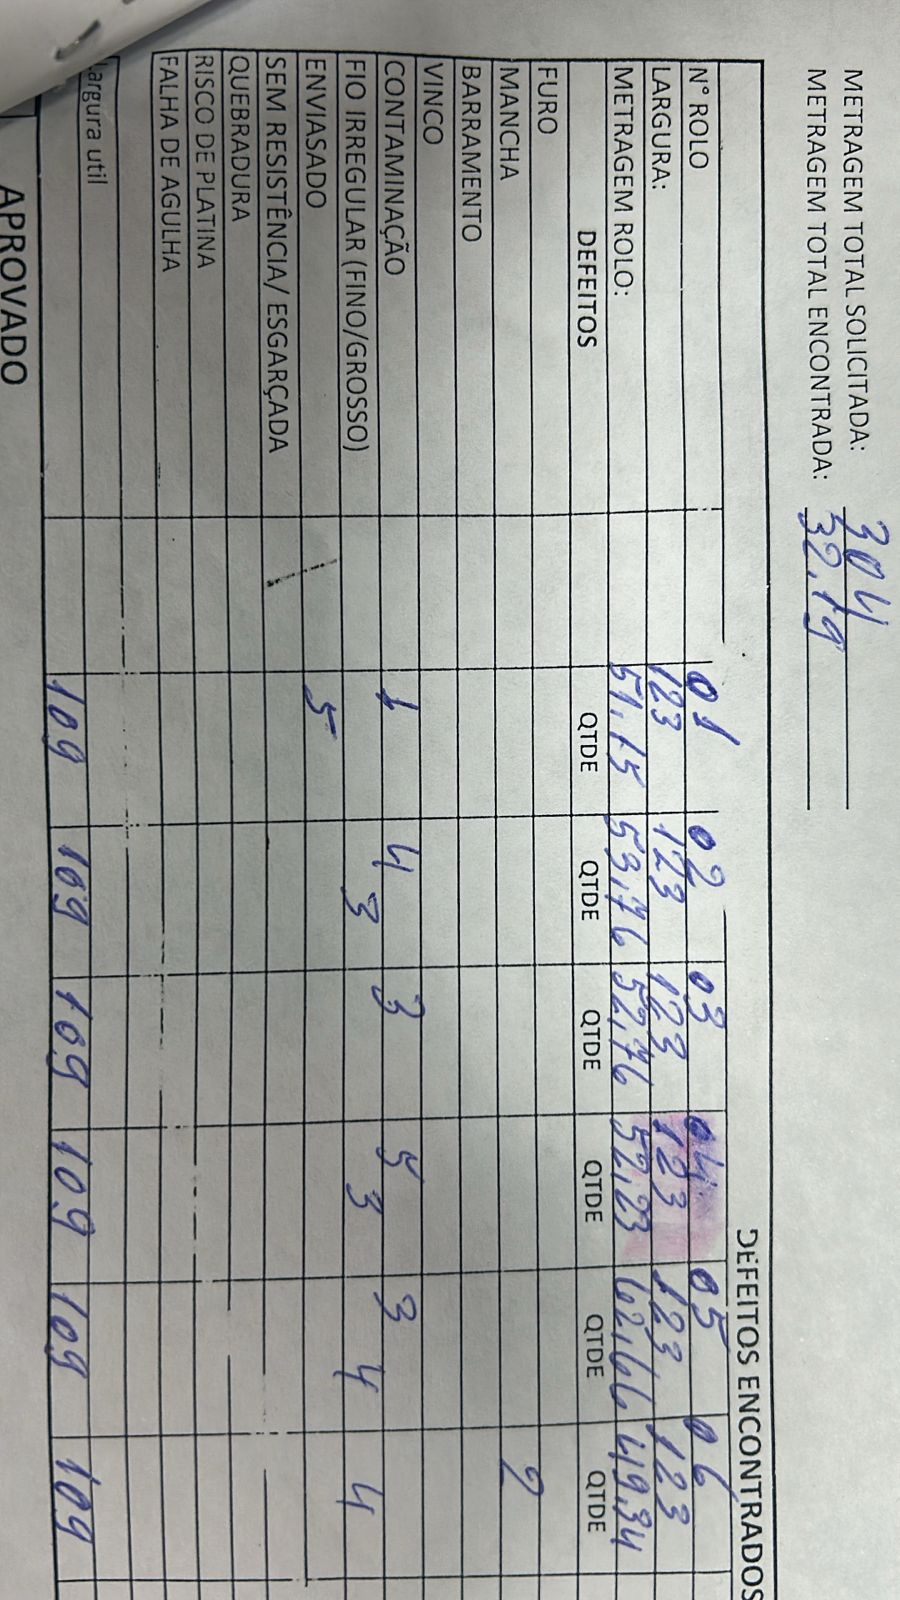 METRAGEM TOTAL SOLICITADA: 304
METRAGEM TOTAL ENCONTRADA: 32,19
DEFEITOS ENCONTRADOS
N° ROLO 01 02 03 04 05 06
LARGURA: 123 123 123 123 123 123
METRAGEM ROLO: 51,15 53,76 52,76 52,23 62,66 49,34
DEFEITOS QTDE QTDE QTDE QTDE QTDE QTDE
FURO
MANCHA 2
BARRAMENTO
VINCO
CONTAMINAÇÃO 1 4 3 5 3
FIO IRREGULAR (FINO/GROSSO) 3 3 4 4
ENVIASADO 5
SEM RESISTÊNCIA/ ESGARÇADA
QUEBRADURA
RISCO DE PLATINA
FALHA DE AGULHA
Largura util 109 109 109 109 109 109
APROVADO